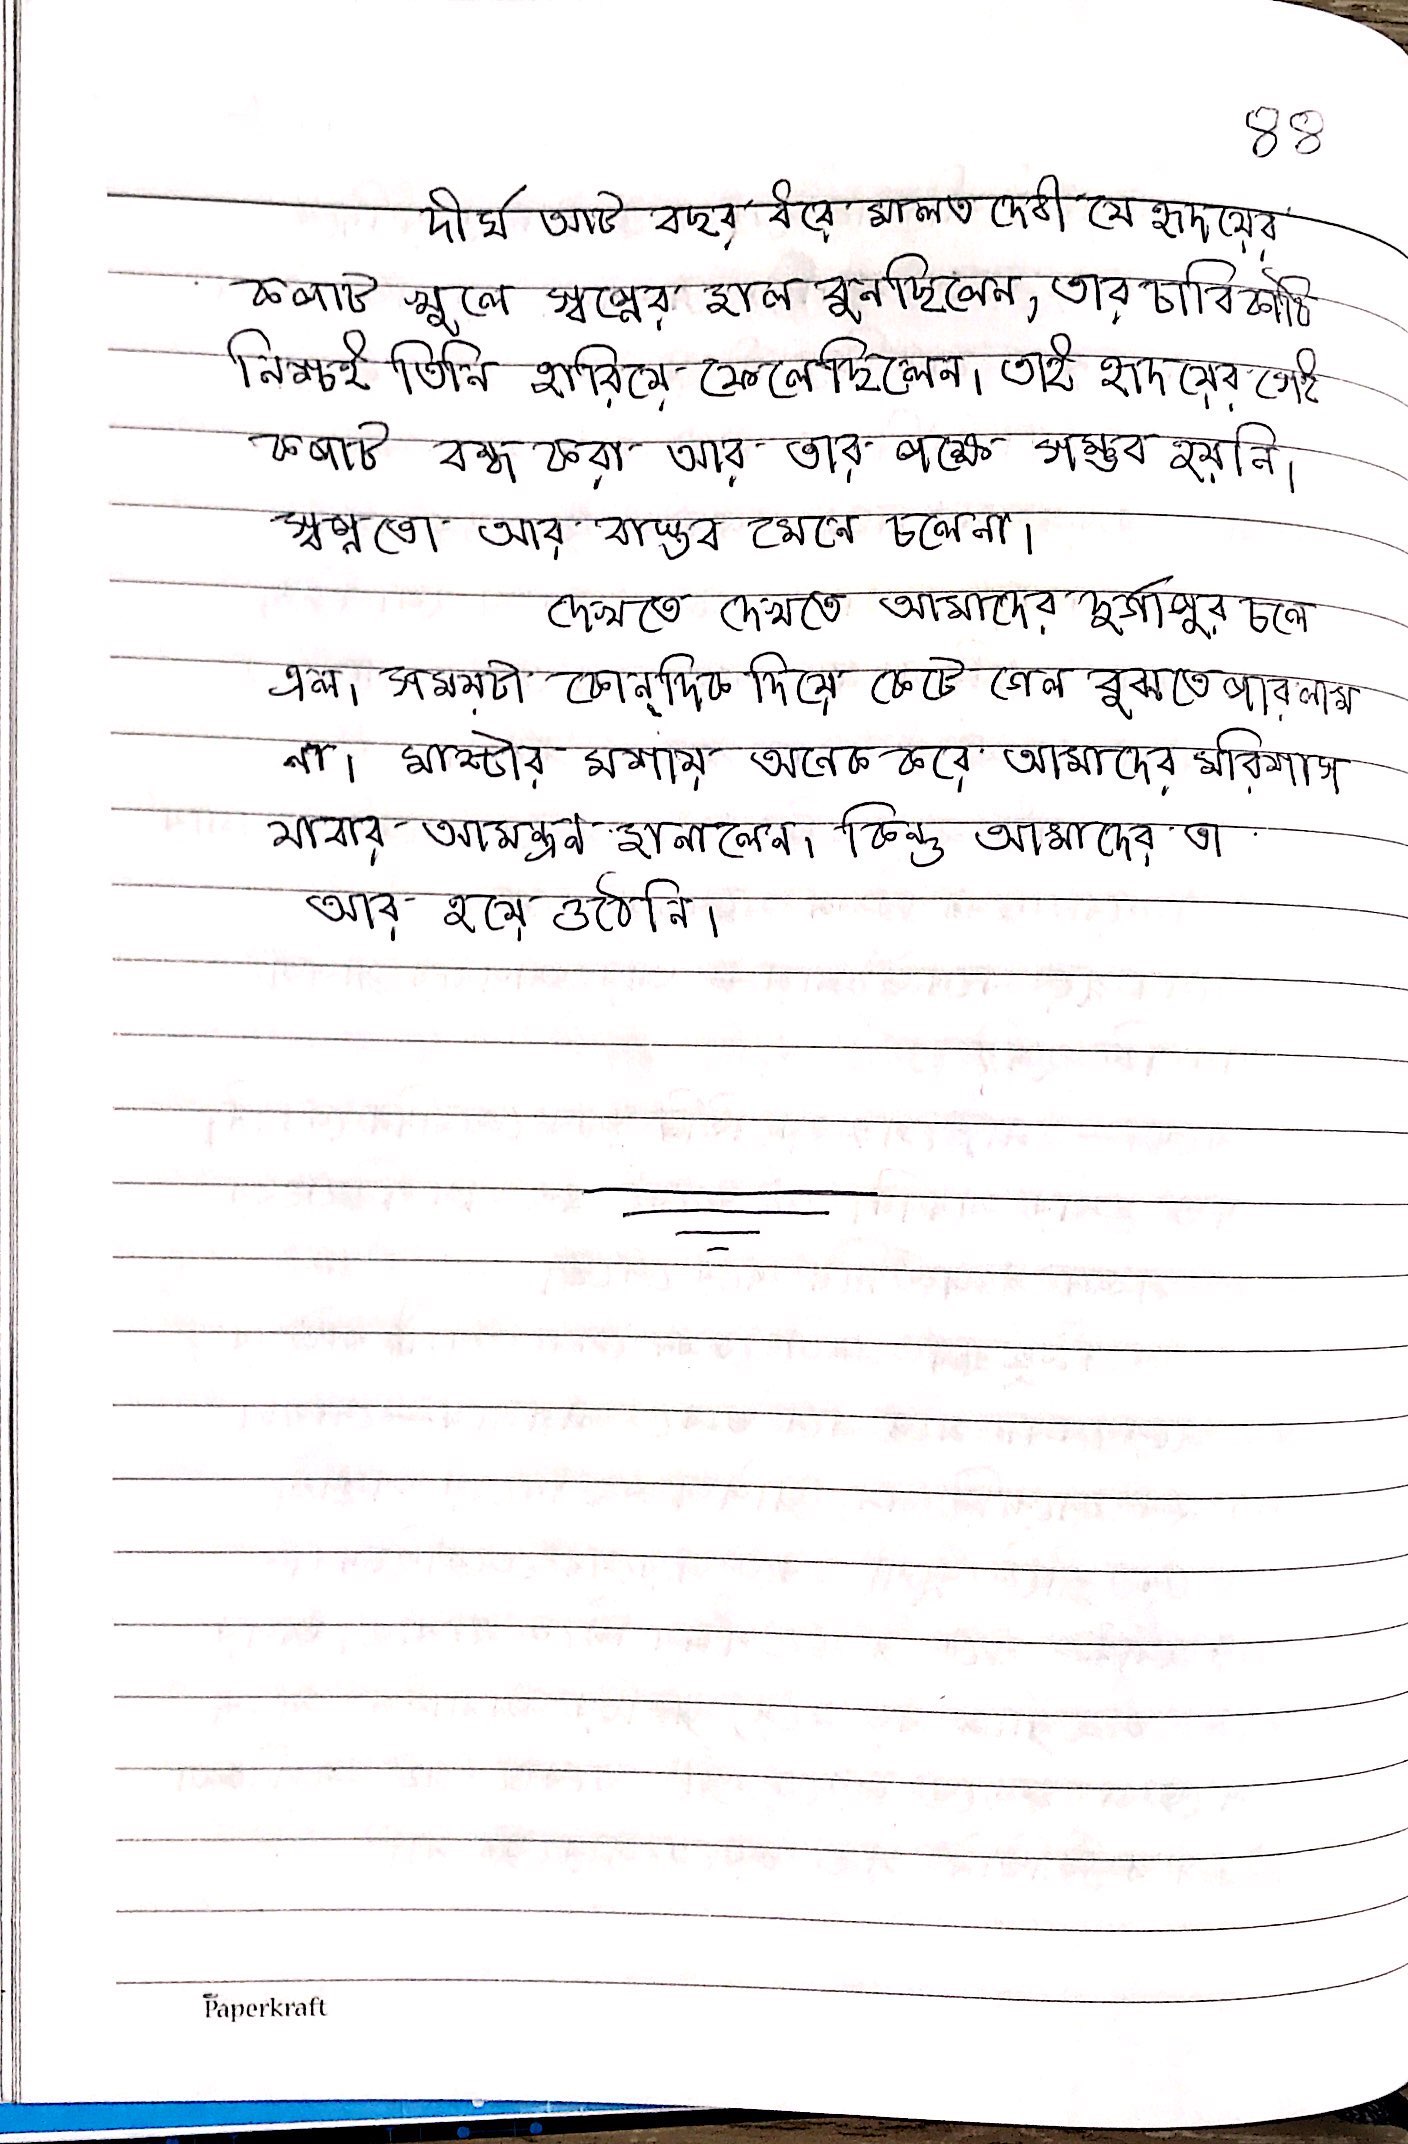 ৪৪
দীর্ঘ আট বছর ধরে মালত দেবী যে হৃদয়ের
কপাট খুলে স্বপ্নের জাল বুনছিলেন, তার চাবিকাঠি
নিশ্চই তিনি হারিয়ে ফেলেছিলেন। তাই হৃদয়ের সেই
কপাট বন্ধ করা আর তার পক্ষে সম্ভব হয়নি।
স্বপ্নতো আর বাস্তব মেনে চলেনা।
দেখতে দেখতে আমাদের দুর্গাপুর চলে
এল। সময়টা কোন্‌দিক দিয়ে কেটে গেল বুঝতে পারলাম
না। মাস্টার মশায় অনেক করে আমাদের মরিশাস
যাবার আমন্ত্রন জানালেন। কিন্তু আমাদের তা
আর হয়ে ওঠেনি।
Paperkraft